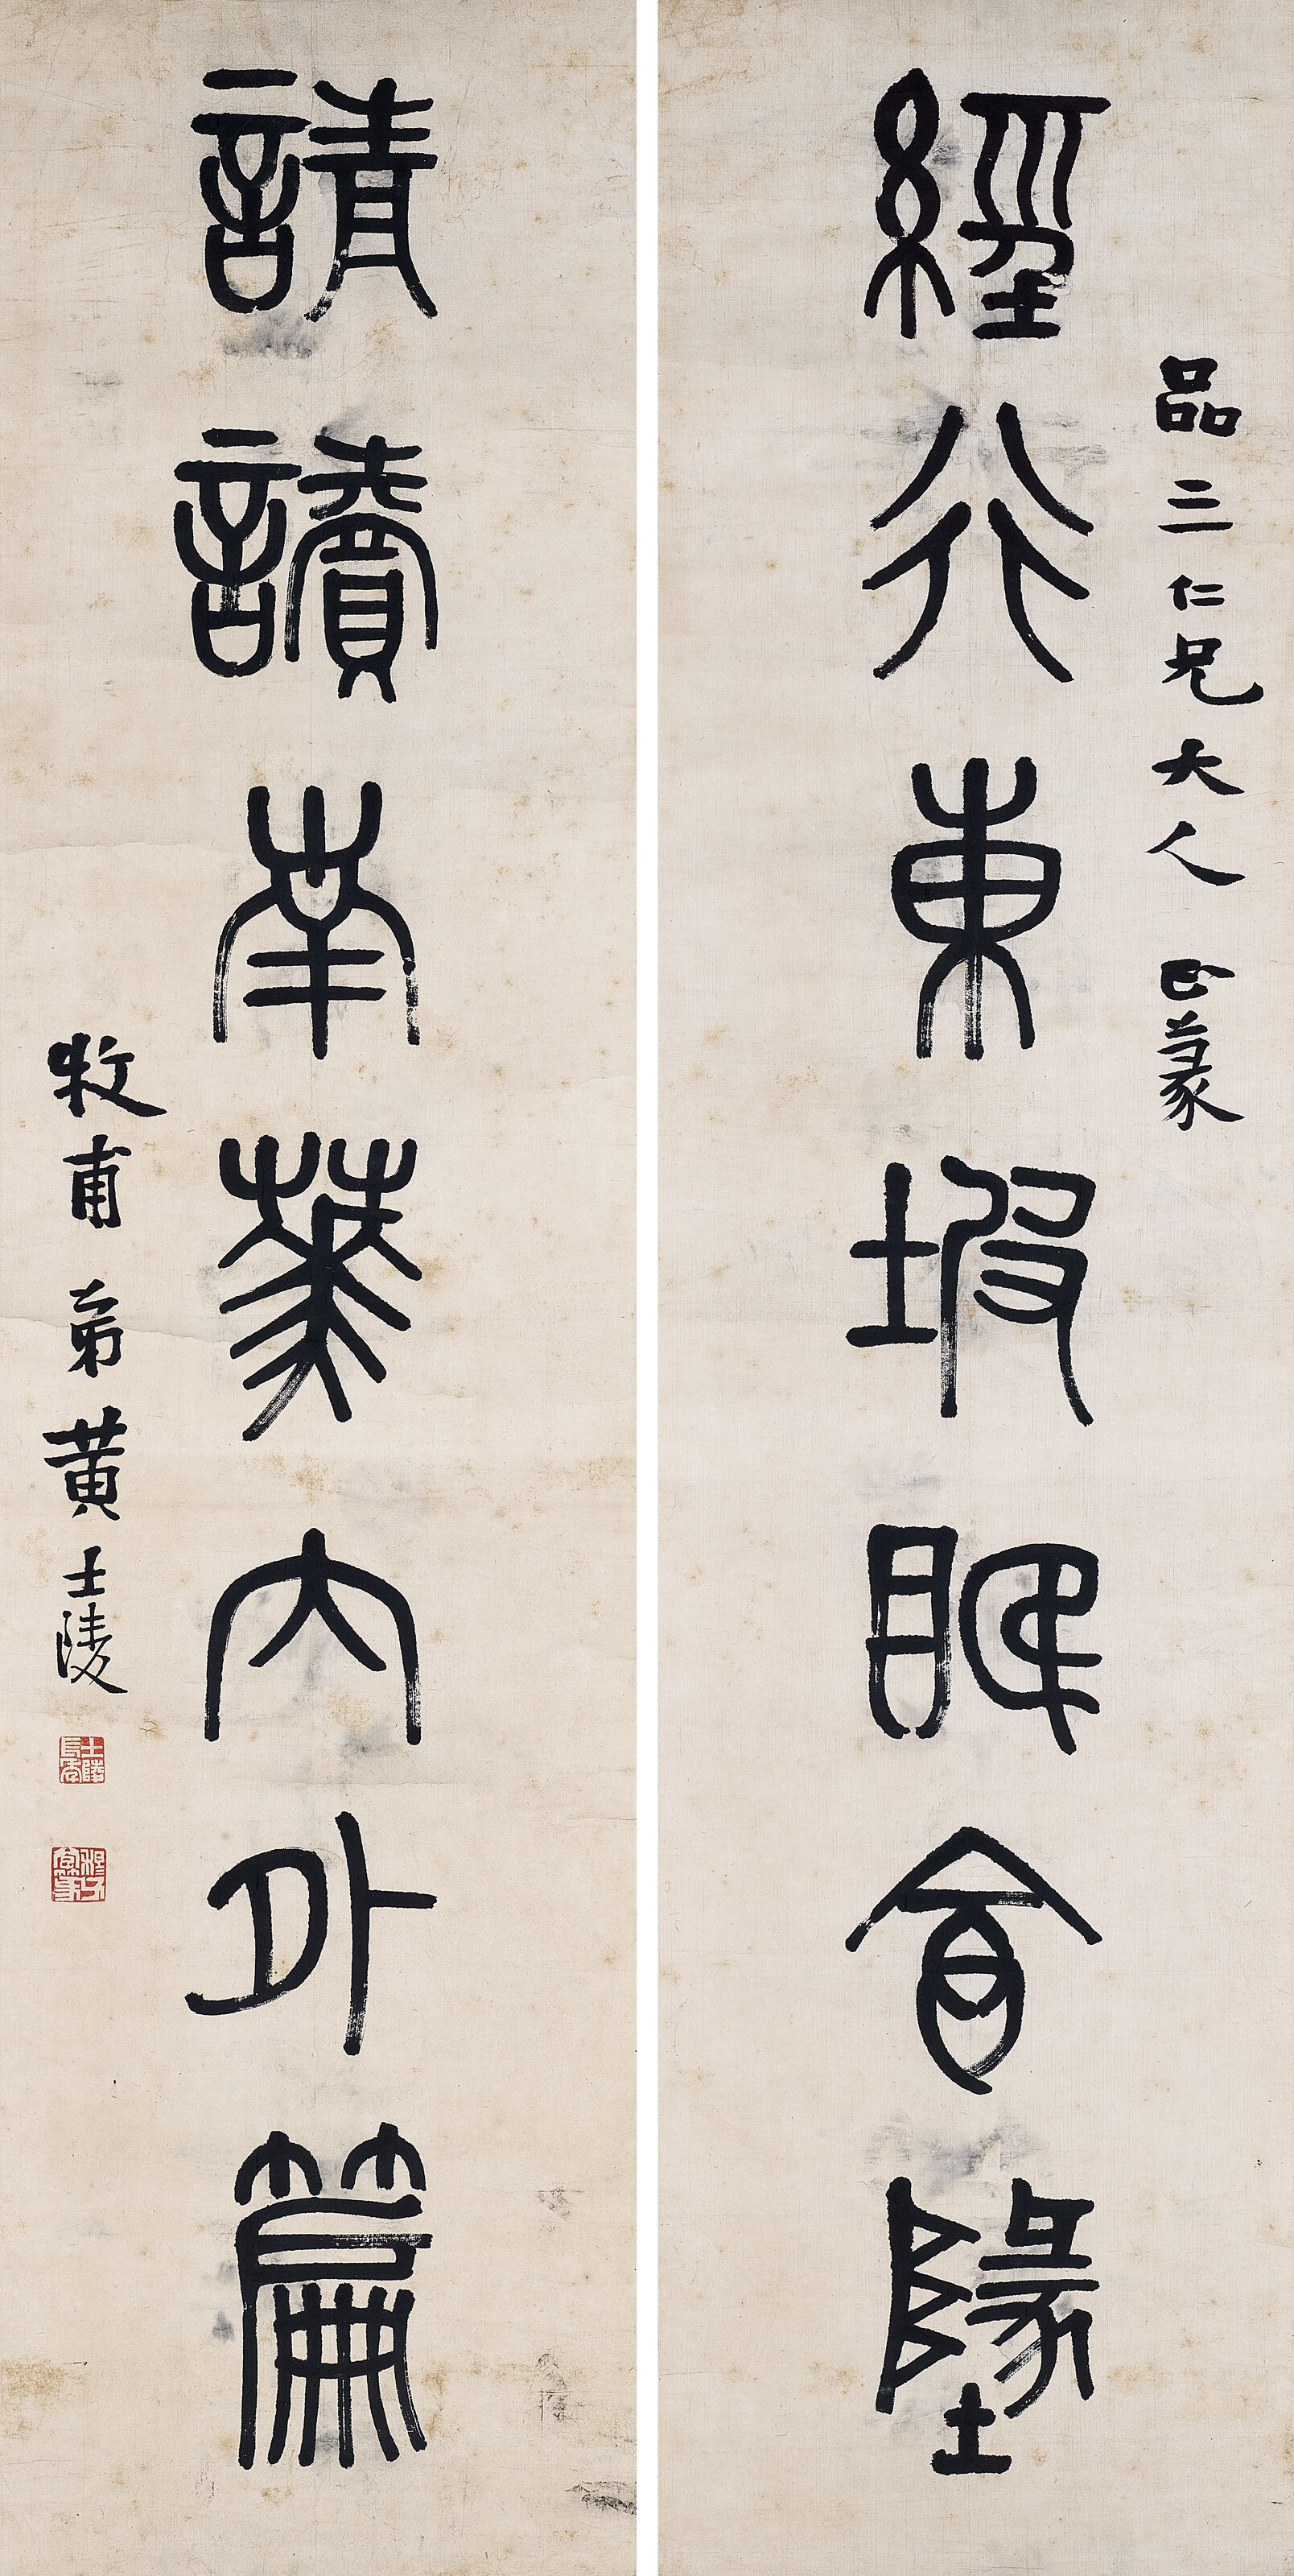 品三仁兄大人 正篆
經行東坡眠食墬
請讀南華內外篇
牧甫弟黃士陵